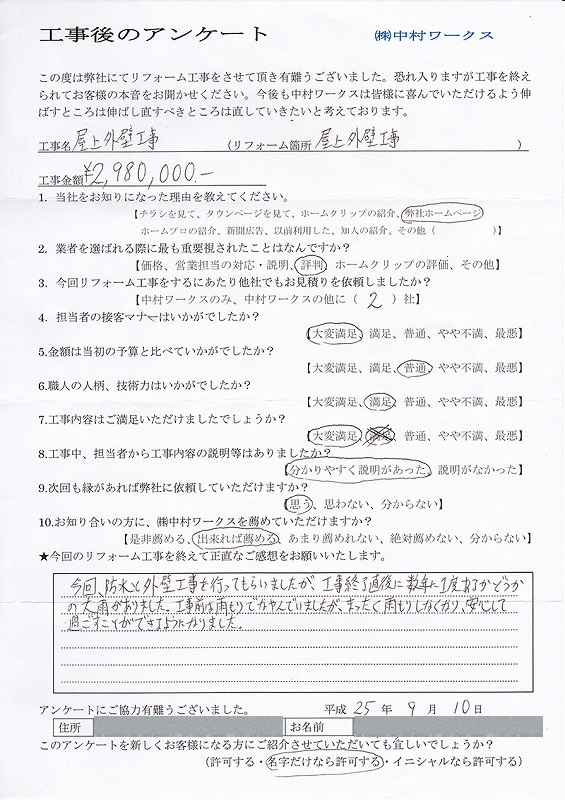 工事後のアンケート ㈱中村ワークス
この度は弊社にてリフォーム工事をさせて頂き有難うございました。恐れ入りますが工事を終え
られてお客様の本音をお聞かせください。今後も中村ワークスは皆様に喜んでいただけるよう伸
ばすところは伸ばし直すべきところは直していきたいと考えております。
工事名 屋上外壁工事 (リフォーム箇所 屋上外壁工事 )
工事金額 ¥2,980,000.-
1. 当社をお知りになった理由を教えてください。
【チラシを見て、タウンページを見て、ホームクリップの紹介、弊社ホームページ
ホームプロの紹介、新聞広告、以前利用した、知人の紹介、その他( )】
2. 業者を選ばれる際に最も重要視されたことはなんですか?
【価格、営業担当の対応・説明、評判、ホームクリップの評価、その他】
3. 今回リフォーム工事をするにあたり他社でもお見積りを依頼しましたか?
【中村ワークスのみ、中村ワークスの他に( 2 )社】
4. 担当者の接客マナーはいかがでしたか?
【大変満足、満足、普通、やや不満、最悪】
5.金額は当初の予算と比べていかがでしたか?
【大変満足、満足、普通、やや不満、最悪】
6.職人の人柄、技術力はいかがでしたか?
【大変満足、満足、普通、やや不満、最悪】
7.工事内容はご満足いただけましたでしょうか?
【大変満足、満足、普通、やや不満、最悪】
8.工事中、担当者から工事内容の説明等はありましたか?
【分かりやすく説明があった、説明がなかった】
9.次回も縁があれば弊社に依頼していただけますか?
【思う、思わない、分からない】
10.お知り合いの方に、㈱中村ワークスを薦めていただけますか?
【是非薦める、出来れば薦める、あまり薦めれない、絶対薦めない、分からない】
★今回のリフォーム工事を終えて正直なご感想をお願いいたします。
今回、防水と外壁工事を行ってもらいましたが、工事終了直後に数年に1度あるかどうか
の大雨がありました。工事前は雨もりでなやんでいましたが、まったく雨もりしなくなり、安心して
過ごすことができるようになりました。
アンケートにご協力有難うございました。 平成 25 年 9 月 10 日
住所 お名前
このアンケートを新しくお客様になる方にご紹介させていただいても宜しいでしょうか?
(許可する・名字だけなら許可する・イニシャルなら許可する)